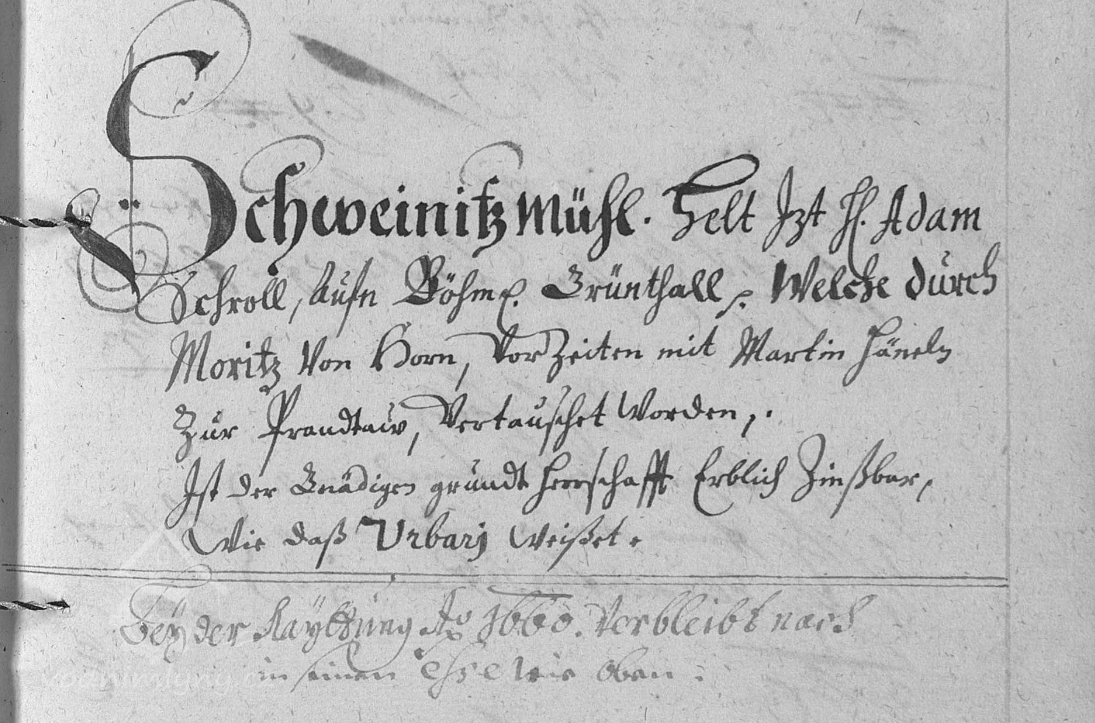 Schweinitz Mühl. Helt Jzt H. Adam
Schroll, Aufn Böhm. Grünthall, Welche durch
Moritz Von Horn, Vor Zeiten mit Martin Häneln
Zur Prandtaw, Vertauschet Worden,.
Ist der Gnädigen grundt Herrschafft Erblich Zinßbar,
Wie daß Urbarj Weißet.
Bey der Rayttung Ao 1660. Verbleibt nach
in seinen Esse wie oben.